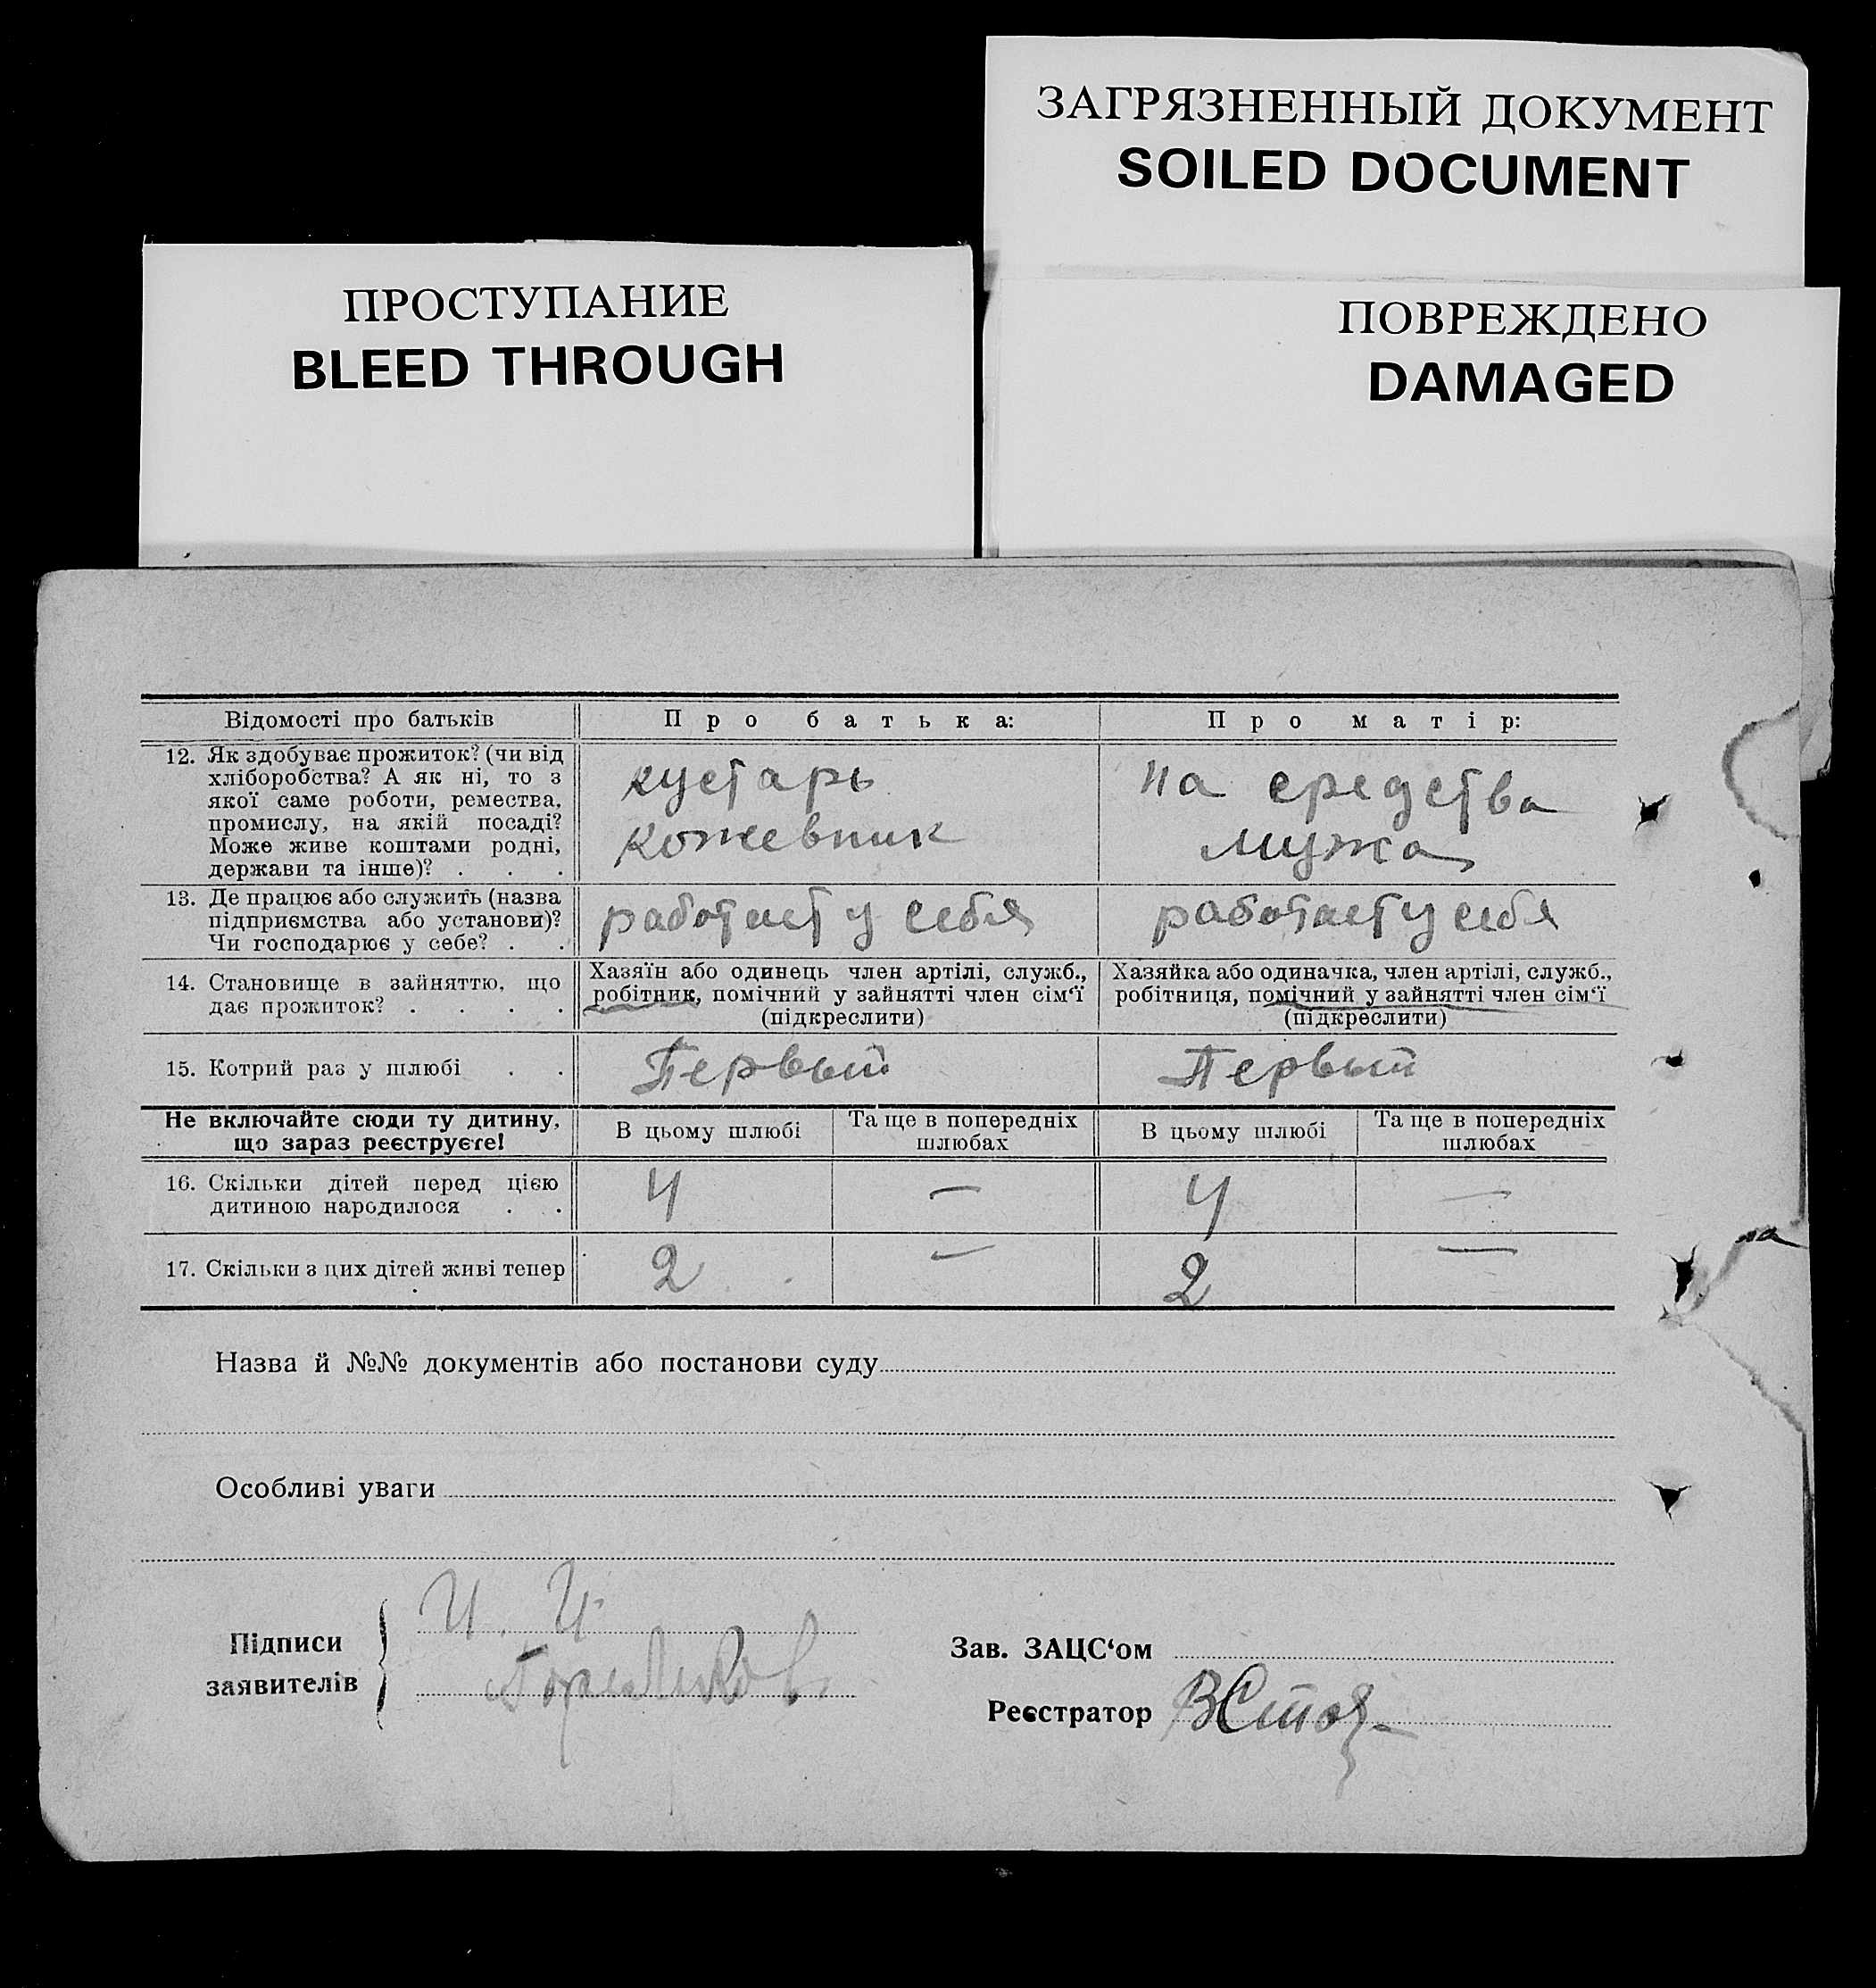 ЗАГРЯЗНЕННЫЙ ДОКУМЕНТ
SOILED DOCUMENT
ПРОСТУПАНИЕ
BLEED THROUGH
ПОВРЕЖДЕНО
DAMAGED
Відомості про батьків
Про батька:
Про матір:
12. Як здобуває прожиток? (чи від
хліборобства? А як ні, то з
якої саме роботи, ремества,
промислу, на якій посаді?
Може живе коштами родні,
держави та інше)? . . .
кустарь
кожевник
на средства
мужа
13. Де працює або служить (назва
підприємства або установи)?
Чи господарює у себе? . .
работает у себя
работает у себя
14. Становище в зайняттю, що
дає прожиток? . . . .
Хазяїн або одинець член артілі, служб.,
робітник, помічний у зайнятті член сім‘ї
(підкреслити)
Хазяйка або одиначка, член артілі, служб.,
робітниця, помічний у зайнятті член сім‘ї
(підкреслити)
15. Котрий раз у шлюбі . .
Первый
Первый
Не включайте сюди ту дитину,
що зараз реєструєте!
В цьому шлюбі
Та ще в попередніх
шлюбах
В цьому шлюбі
Та ще в попередніх
шлюбах
16. Скільки дітей перед цією
дитиною народилося . .
4
—
4
—
17. Скільки з цих дітей живі тепер
2
—
2
—
Назва й №№ документів або постанови суду
Особливі уваги
Підписи
заявителів
И. И.
Зав. ЗАЦС‘ом
Реєстратор